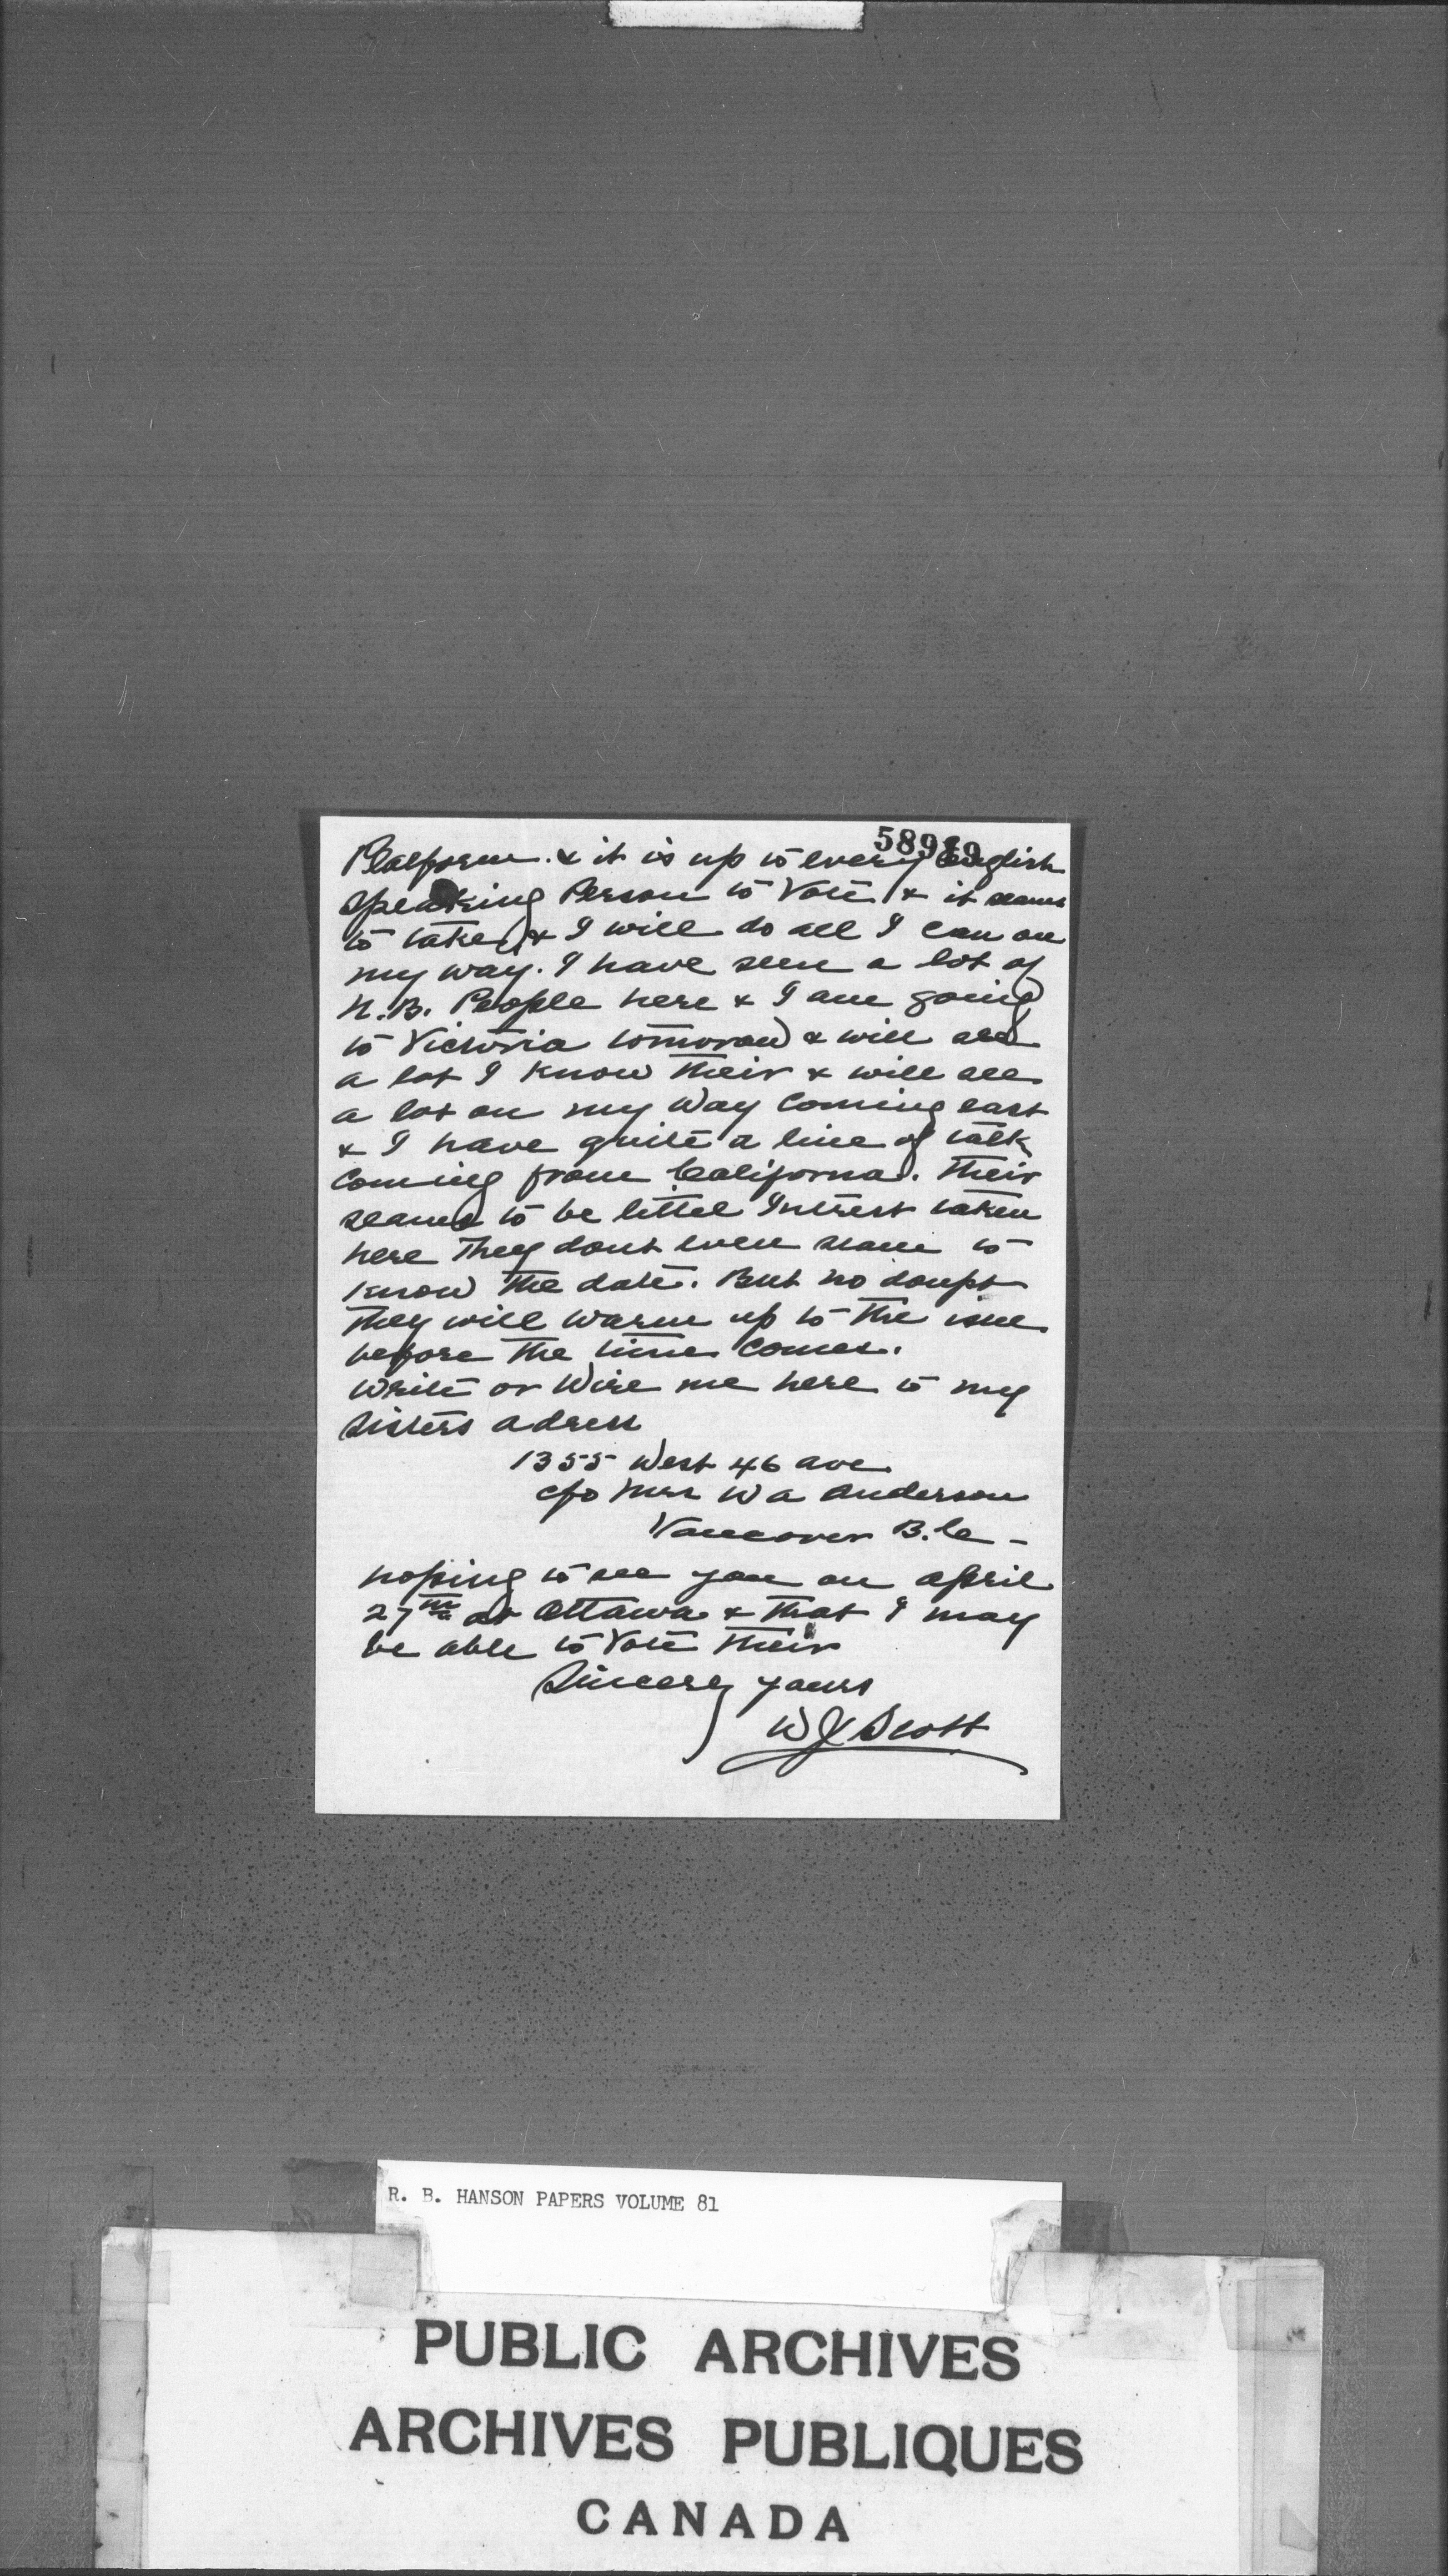 58919
Platform. & it is up to every English
speaking Person to Vote & it seams
to take, & I will do all I can on
my way. I have seen a lot of
N.B. People here & I am going
to Victoria tomorow & will see
a lot I know their & will see
a lot on my way Coming east
& I have quite a line of talk
Coming from California. Their
seams to be littel Intrest taken
here They dont even seam to
know the date. But no doupt
They will warm up to the isue
before the time comes.
Write or Wire me here to my
Sisters adress
1355 West 46 ave
c/o Mrs W a Anderson
Vancover B.C -
hoping to see you on April
27th at Ottawa & that I may
be able to Vote their
Sincerly yours
W J Scott
R. B. HANSON PAPERS VOLUME 81
PUBLIC ARCHIVES
ARCHIVES PUBLIQUES
CANADA